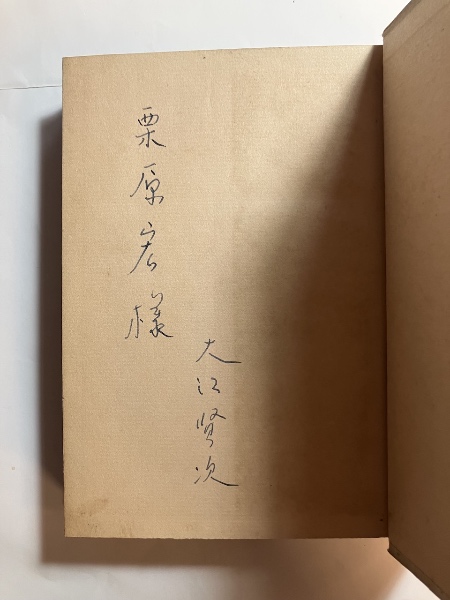 栗原宏様
大江賢次